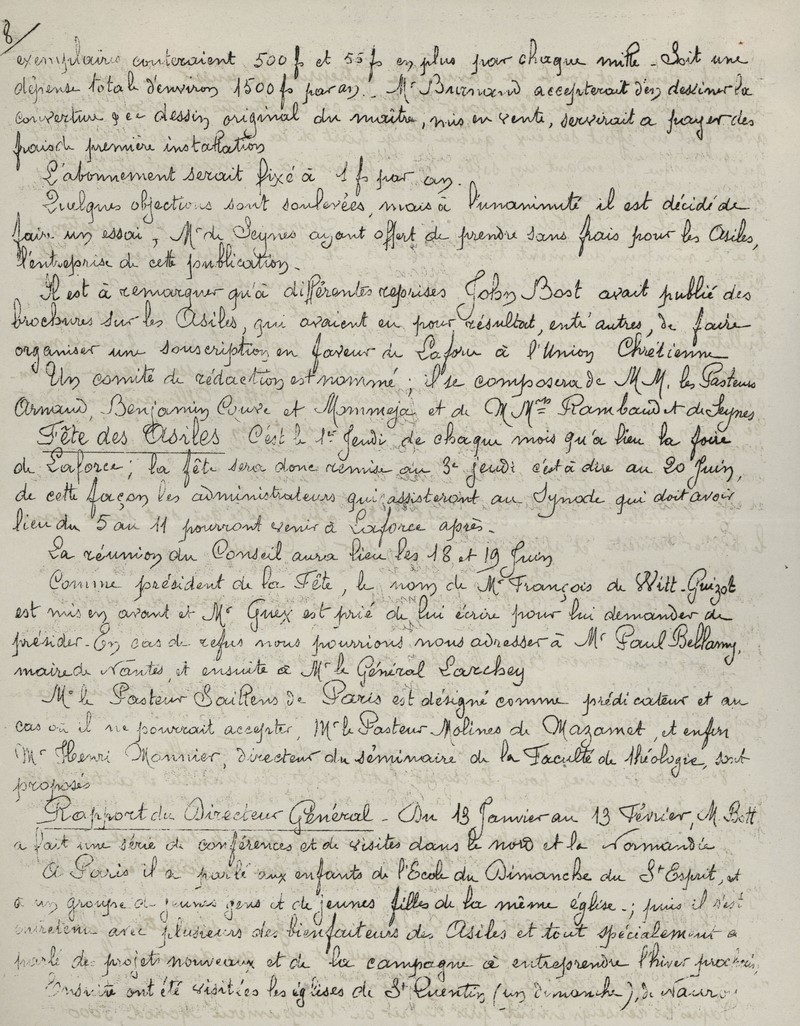 8/
exemplaires couteraient 500 f et 55 f en plus par chaque mille - Soit une
dépense totale d'environ 1500 f par an. - Mr Burnand accepterait d'en dessiner la
couverture & ce dessin original du maître, mis en vente, servirait a payer des
frais de première installation
L'abonnement serait fixé à 1 f par an.
Quelques objections sont soulevées, mais à l'unanimité il est décidé de
faire un essai, Mr de Seynes ayant offert de prendre sans frais pour les Asiles,
l'entreprise de cette publication.
Il est à remarquer qu'à différentes reprises John Bost avait publié des
brochures sur les Asiles, qui avaient eu pour résultat, entr'autres, de faire
organiser une souscription en faveur de Laforce à l'Union Chrétienne
Un comité de rédaction est nommé; il se composera de M.M. les Pasteurs
Arnaud, Benjamin Couve et Mommeja et de M Mrs Rambaud et de Seynes.
Fête des Asiles C'est le 1er Jeudi de chaque mois qu'a lieu la foire
de Laforce; la fête sera donc remise au 3e jeudi c'est à dire au 20 Juin,
de cette façon les administrateurs qui assisteront au Synode qui doit avoir
lieu du 5 au 11 pourront venir à Laforce après.
La réunion du Conseil aura lieu les 18 et 19 Juin
Comme président de la Fête, le nom de Mr François de Witt-Guizot
est mis en avant et Mr Guex est prié de lui écrire pour lui demander de
présider. En cas de refus nous pourrions nous adresser à Mr Paul Bellamy,
maire de Nantes, et ensuite à Mr le Général Larchey
Mr le Pasteur Saillens de Paris est désigné comme prédicateur et au
cas où il ne pourrait accepter, Mr le Pasteur Molines de Mazamet, et enfin
Mr Henri Monnier, directeur du séminaire de la Faculté de théologie, sont
proposés
Rapport du Directeur Général - Du 13 Janvier au 13 Février, M. Bott
a fait une série de conférences et de visites dans le nord et la Normandie
A Paris il a parlé aux enfants de l'Ecole du Dimanche du St Esprit, et
a un groupe de jeunes gens et de jeunes filles de la même église -; puis il s'est
entretenu avec plusieurs des bienfaiteurs des Asiles et tout spécialement a
parlé de projets nouveaux et de la campagne à entreprendre l'hiver prochain.
Ensuite ont été visitées les églises de St Quentin (un dimanche), de